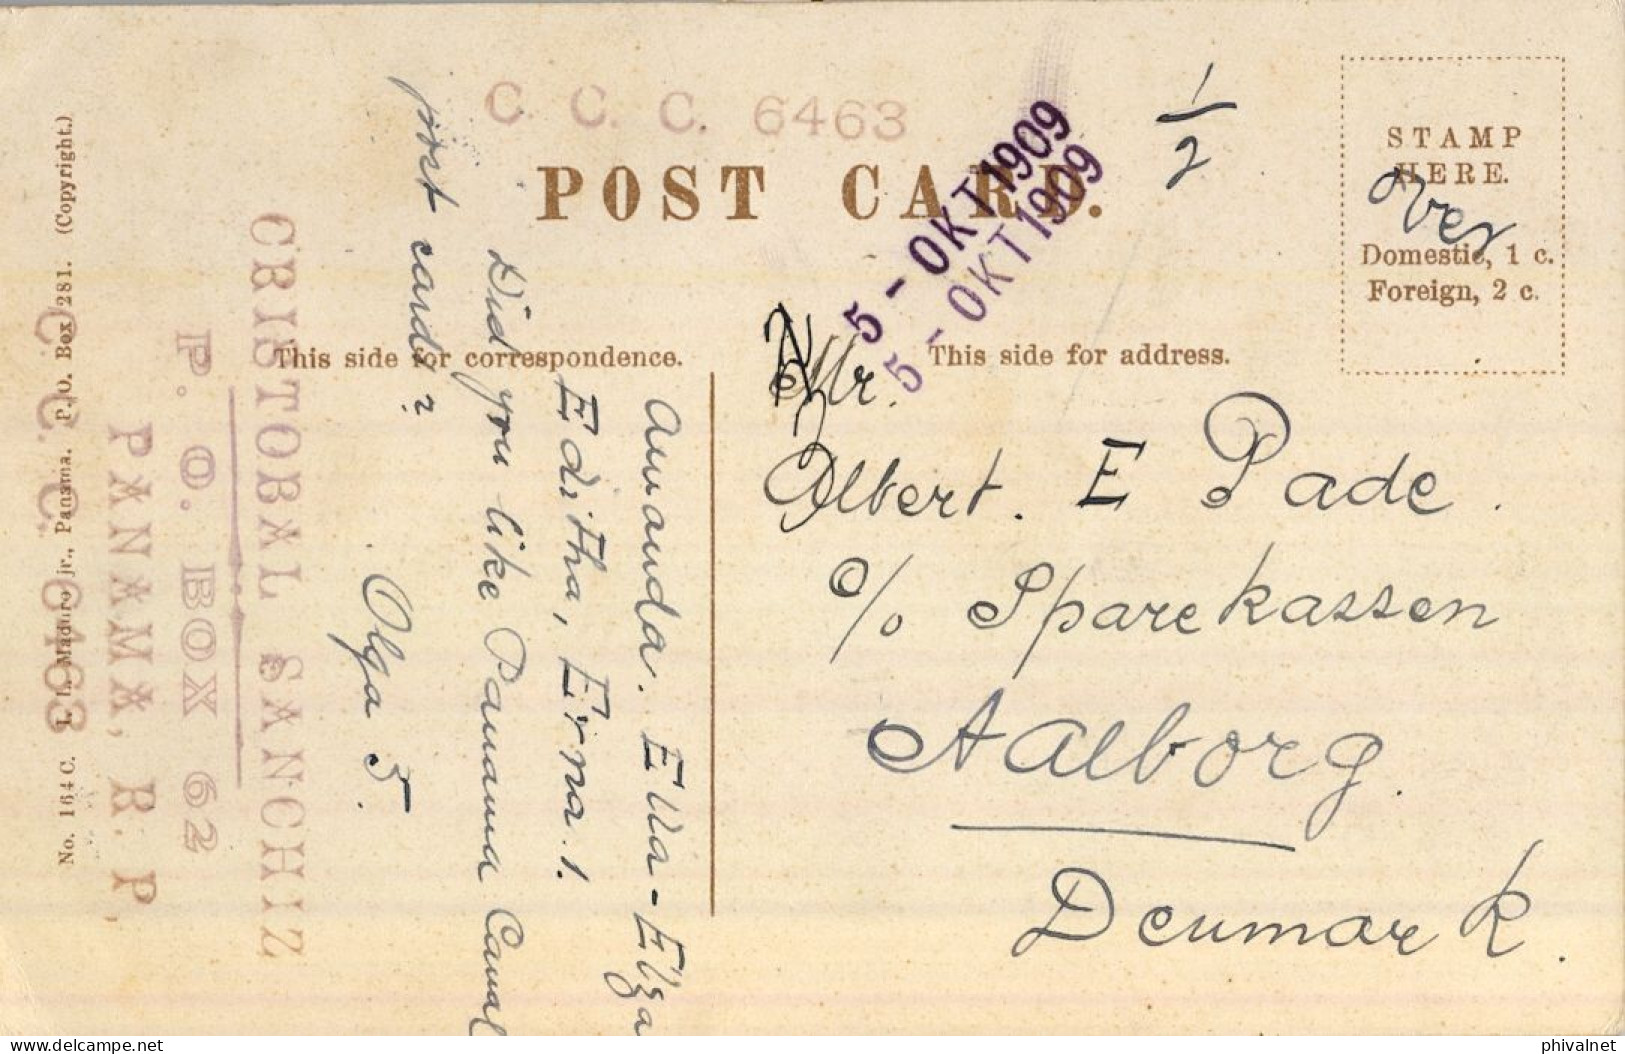 C. C. C. 6463
POST CARD.
5 - OKT 1909
5 - OKT 1909
1/2
STAMP
HERE.
Over
Domestic, 1 c.
Foreign, 2 c.
This side for correspondence.
This side for address.
Mr.
Albert. E Pade.
c/o Sparekassen
Aalborg.
Denmark.
Amanda. Ella-Elga
Editha, Erna.!
Did you like Panama Canal
post card?
Olga S.
CRISTOBAL SANCHIZ
P. O. BOX 62
PANAMA, R. P,
C. C. C. 6463
No. 164 C. I. L. Maduro jr., Panama. P.O. Box 281. (Copyright.)
phivalnet
delcampe.net